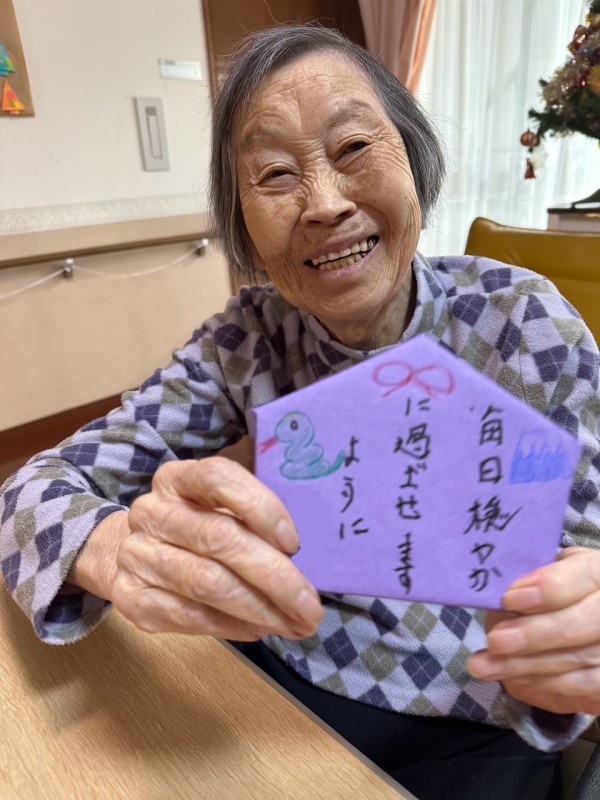 毎日穏やか
に過ごせます
ように